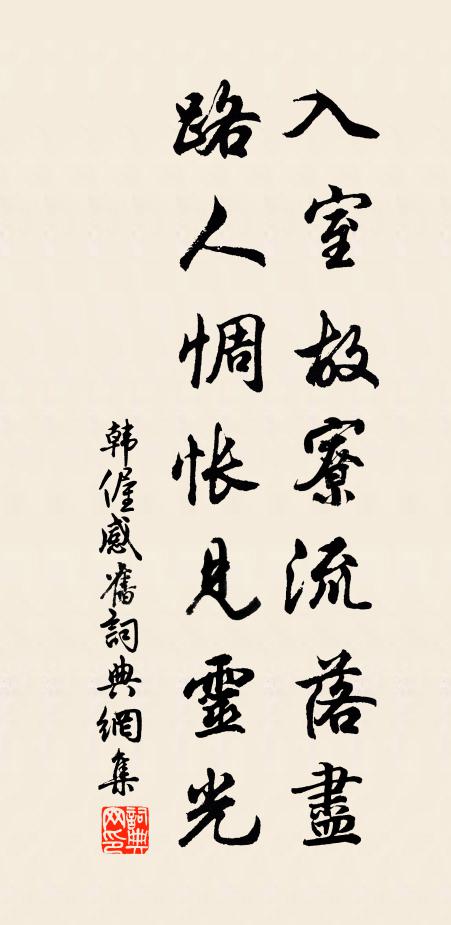 入室故寮流落盡
路人惆悵見靈光
韓偓感舊詞典網集
詞典
网印